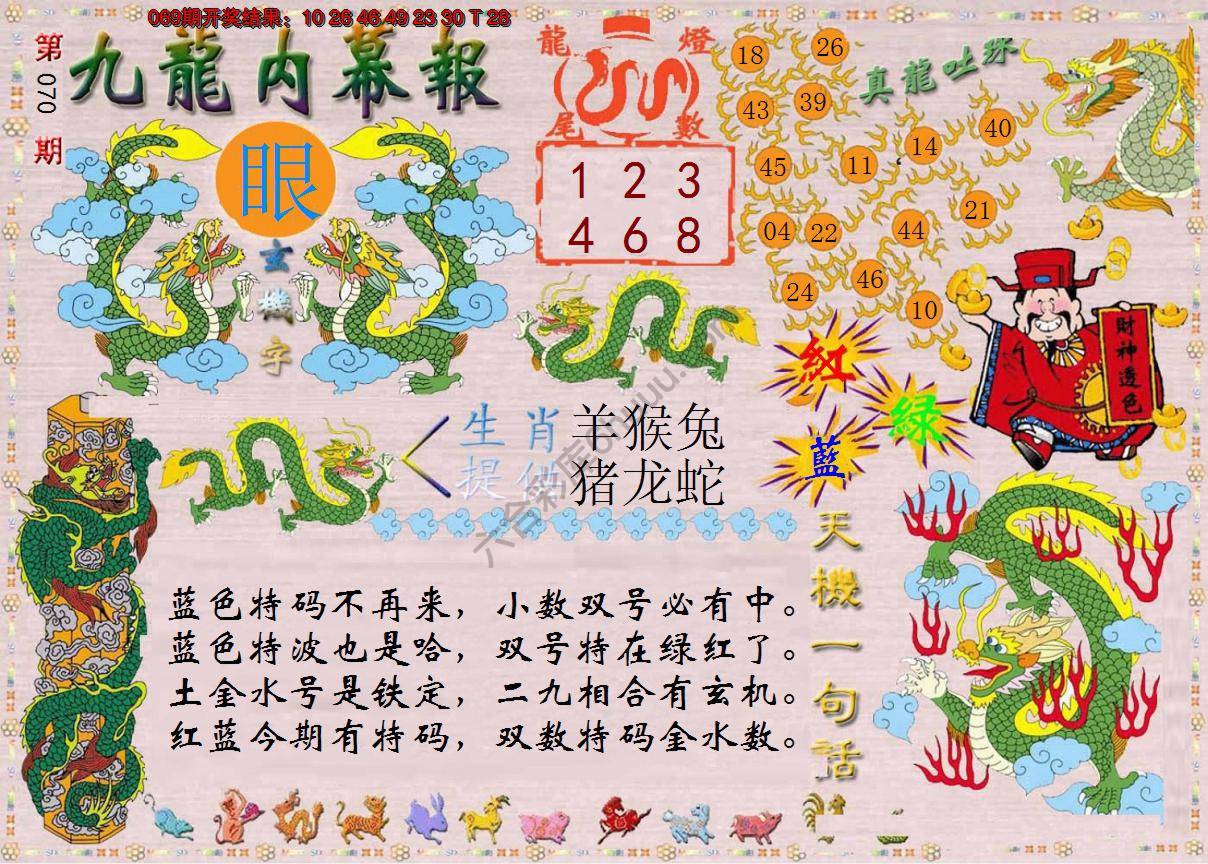 069期开奖结果：10 26 46 49 23 30 T 28
第
070
期
九龍内幕報
眼
玄
機
字
龍 燈
尾 數
1 2 3
4 6 8
真龍吐珠
18 26
43 39
45 11 14 40
04 22 44 21
24 46 10
財神透色
紅
綠
藍
生肖 羊猴兔
提供 猪龙蛇
天機一句話
蓝色特码不再来，小数双号必有中。
蓝色特波也是哈，双号特在绿红了。
土金水号是铁定，二九相合有玄机。
红蓝今期有特码，双数特码金水数。